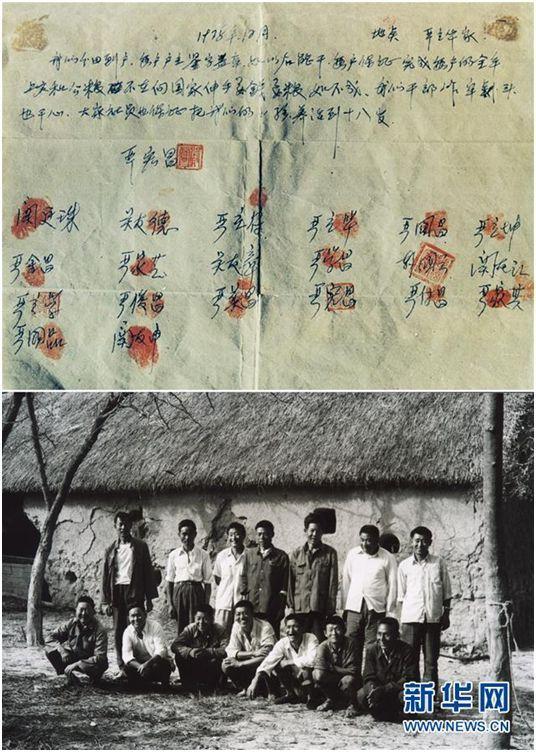 1978年12月 地点 严立华家
我们分田到户 每户户主签字盖章 如以后能干 每户保证完成每户的全年
上交和公粮 不在向国家伸手要钱要粮 如不成 我们干部作牢刹头
也干心 大家社员也保证把我们的小孩养活到十八岁
严宏昌
关廷珠 关友德 严立符 严立华 严国昌 严立坤
严金昌 严家芝 关友章 严学昌 韩国云 关友江
严立学 严俊昌 严美昌 严宏昌 严付昌 严家其
严国品 关友申
新华网
WWW.NEWS.CN